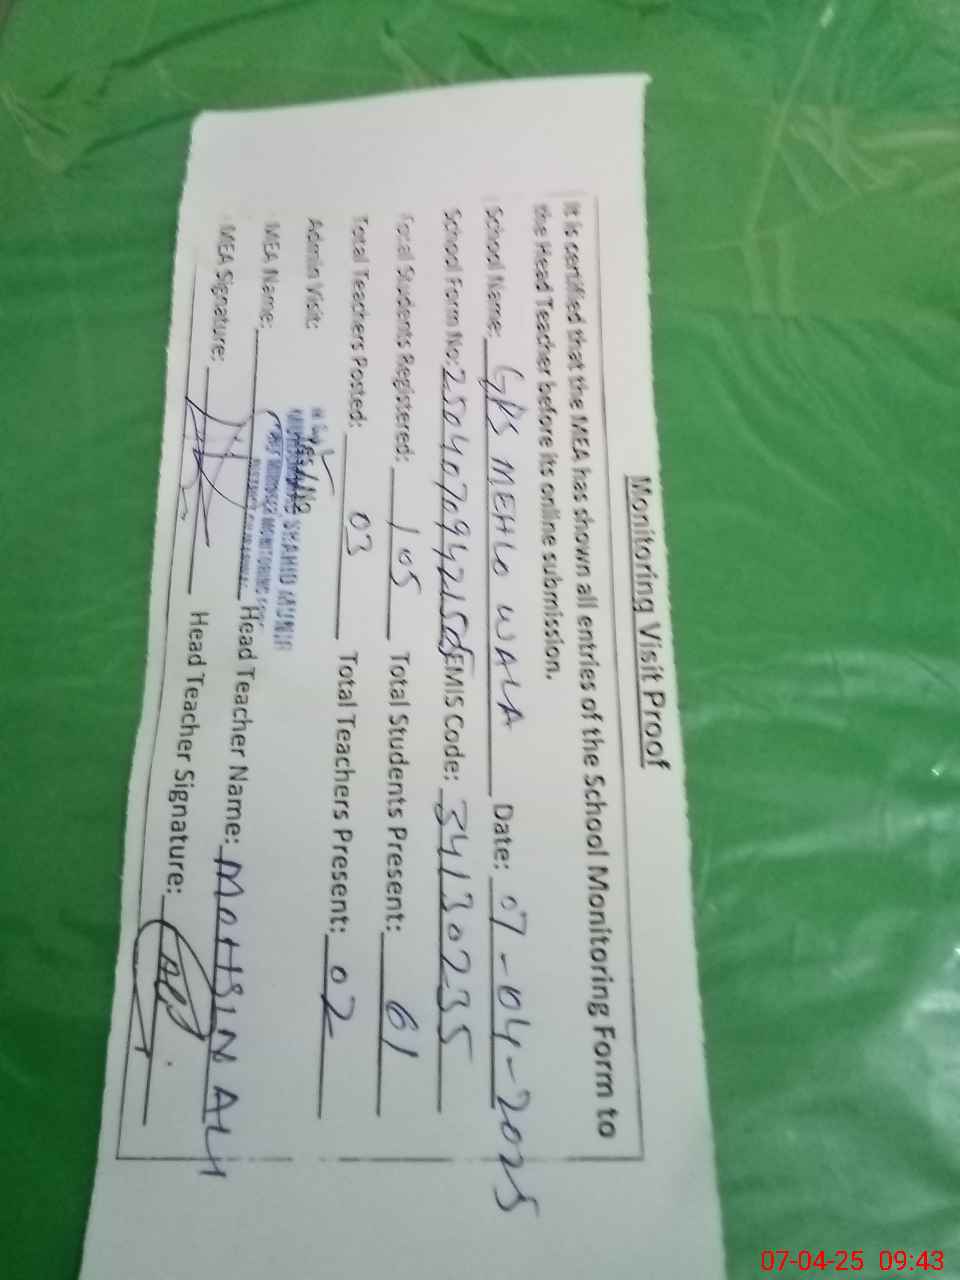 Monitoring Visit Proof
It is certified that the MEA has shown all entries of the School Monitoring Form to
the Head Teacher before its online submission.
School Name: GPS MEHLO WALA Date: 07-04-2025
School Form No: EMIS Code: 34130235
Total Students Registered: 105 Total Students Present: 61
Total Teachers Posted: 03 Total Teachers Present: 02
Admin Visit: Yes/No
SHAHID MUNIR
MEA Name: Head Teacher Name: MOHSIN ALI
MEA Signature: Head Teacher Signature:
07-04-25 09:43